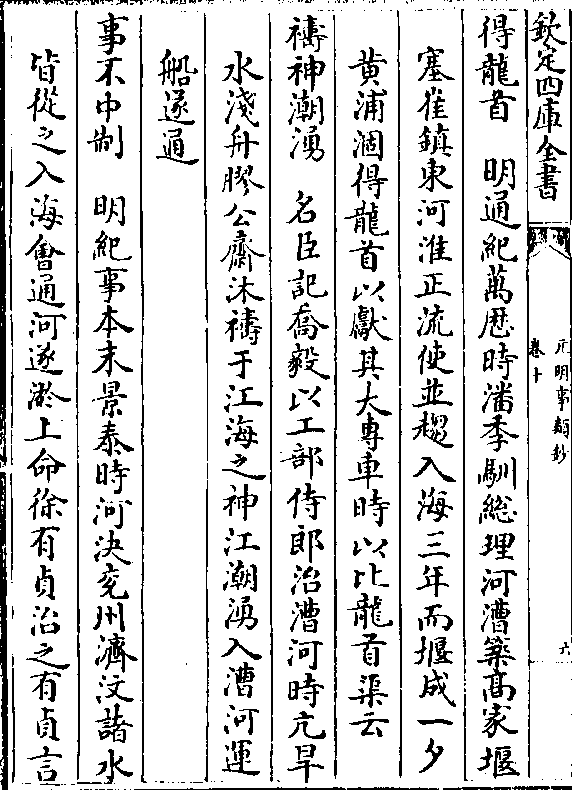 欽定四庫全書
元明事類鈔
卷十
六
得龍首　明通紀萬厯時潘季馴総理河漕築髙家堰
塞崔鎮東河淮正流使並趨入海三年而堰成一夕
黄浦涸得龍首以獻其大専車時以比龍首渠云
禱神潮湧　名臣記喬毅以工部侍郎治漕河時亢旱
水淺舟膠公齋沐禱于江海之神江潮湧入漕河運
船遂通
事不中制　明紀事本末景泰時河決兖州濟汶諸水
皆從之入海會通河遂淤上命徐有貞治之有貞言